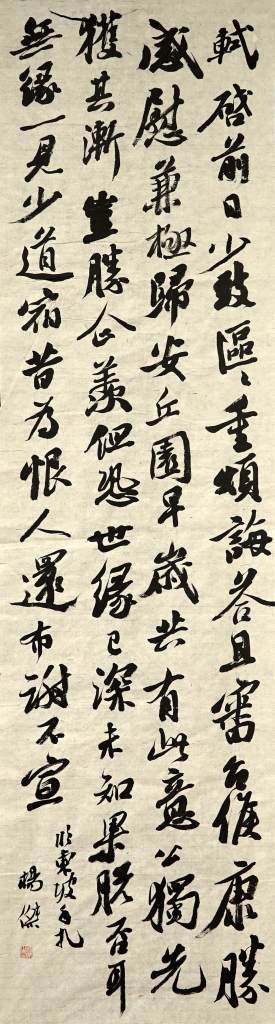 軾啓前日少致區〻重煩誨答且審台候康勝
感慰兼極歸安丘園早歲共有此意公獨先
獲其漸豈勝企羨但恐世緣已深未知果脫否耳
無緣一見少道宿昔為恨人還布謝不宣
臨東坡手札
楊傑